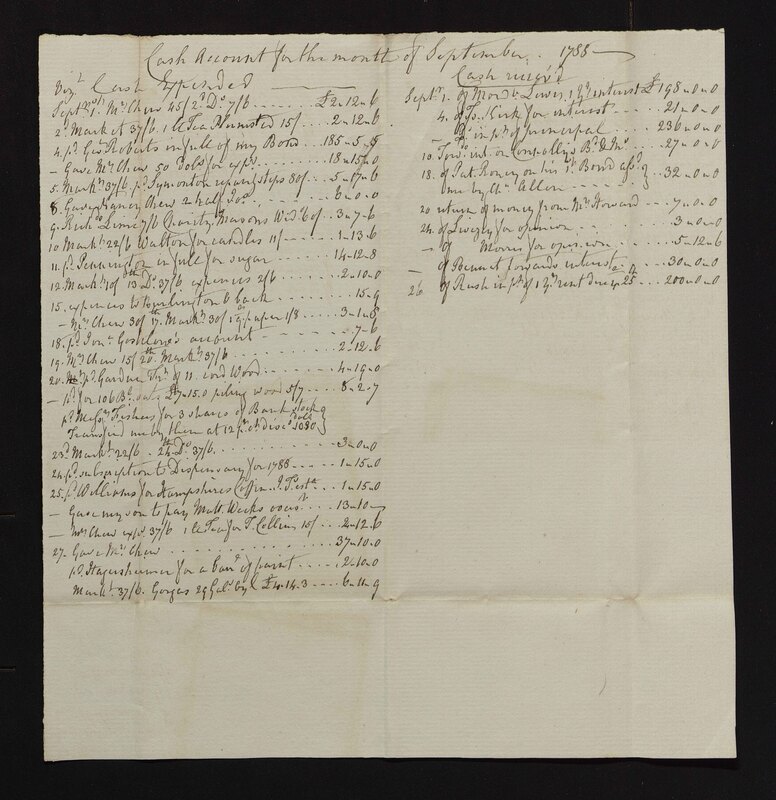 Cash Account for the month of September. 1788
Viz.t Cash Expended
Sept.r 1. Mrs Chew 45/ 2.d Do 7/6 £2..12..6
2. Market 37/6. 1 lb Tea 15/ 2..12..6
4. p.d Geo. Roberts in full of my Bond 185..5..5
— Gave Mrs Chew 50 Dolrs for exps 18..15..0
5. Markt 37/6 p.d Symonton steps 80/ 5..17..6
8. Gave Chew 2 half Jos. 6..0..0
9. Rich.d 7/6 Charity Masons Wid.w 60/ 3..7..6
10 Markt 22/6 Walton for candles 11/ 1..13..6
11. p.d Pennington in full for sugar 14..12..8
12. Markt 10/ 13th Do 37/6 expences 2/6 2..10..0
15. expences to Burlington & back 15..9
— Mrs Chew 30/ 17. Markt 30/ paper 1/8 3..1..8
18. p.d Jon.a account 7..6
19. Mrs Chew 15/ 20th Markt 37/6 2..12..6
20. p.d Gardner of 11 cord Wood 4..19..0
— p.d for 106 B. oats £7..15..0 piling wood 5/7 8..2..7
p.d Messrs Fishers for 3 shares of Bank stock
Transfd me by them at 12 pr Ct 1080
23.d Markt 22/6. 24th Do 37/6 3..0..0
24. p.d subscription to Dispensary for 1788 1..15..0
25. p.d Williams for Hampshires Coffin 1..15..0
— Gave my son to pay Matt. Weeks 13..10
— Mrs Chew exps 37/6 1 lb Tea for T. Collins 15/ 2..12..6
27. Gave Mrs Chew 37..10..0
p.d for a barr.l of paint 2..10..0
Markt 37/6. Gorgas 29 Gals £4..14..3 6..11..9
Cash receivd
Septr 1. of Lewis, 1 Yrs interest £198..0..0
4. of Jos. Kirk for interest 21..0..0
Do in pt of principal 236..0..0
13. int. on Connolly's Bd & 27..0..0
18. of Pat. Roney on his 1st Bond
me by Allen 32..0..0
20 return of money from Mr Howard 7..0..0
24. of Livezey for opinion 3..0..0
— of Morris for opinion 5..12..6
— of Bennet towards interest 30..0..0
26 of Rush in pt of 1 Yrs rent due 200..0..0